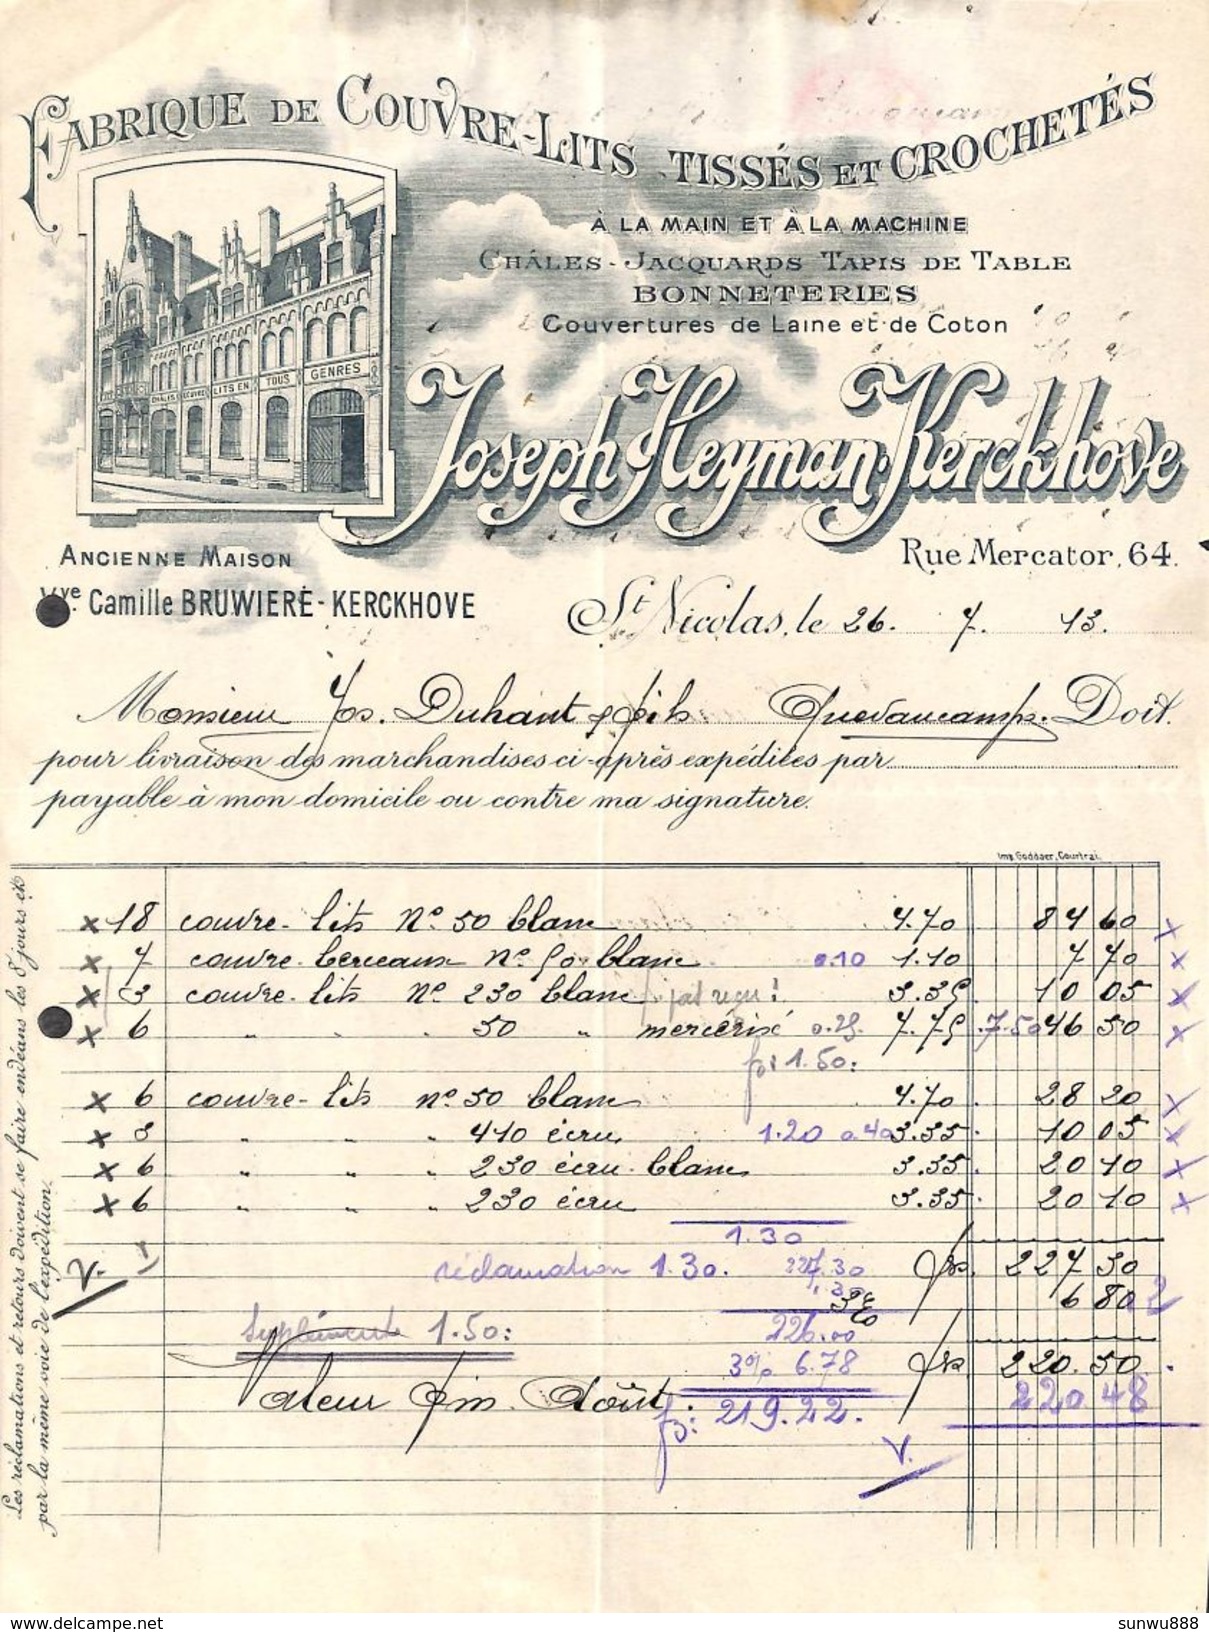 FABRIQUE DE COUVRE-LITS TISSÉS ET CROCHETÉS
À LA MAIN ET À LA MACHINE
CHÂLES - JACQUARDS TAPIS DE TABLE
BONNETERIES
Couvertures de Laine et de Coton
CHÂLES COUVRE LITS EN TOUS GENRES
Joseph Heyman-Kerckhove
ANCIENNE MAISON
Vve Camille BRUWIERE-KERCKHOVE
Rue Mercator, 64.
St Nicolas, le 26. 7. 13.
Monsieur Jos. Duhant & fils Quevaucamps. Doit.
pour livraison des marchandises ci-après expédiées par
payable à mon domicile ou contre ma signature.
Imp. Goddaer, Courtrai.
Les réclamations et retours doivent se faire endéans les 8 jours et
par la même voie de l'expédition.
x 18 couvre-lits No 50 blanc 4.70 84 60 x
x 7 couvre-berceaux No 50 blanc 0.10 1.10 7 70 x
x 3 couvre-lits No 230 blanc pas reçu! 3.35 10 05 x
x 6 " " 50 " mercerisé 0.25. 7.75 7.50 46 50 x
1.50:
x 6 couvre-lits no 50 blanc 4.70 28 20 x
x 3 " " " 410 écru 1.20 0.40 3.35 10 05 x
x 6 " " " 230 écru-blanc 3.35 20 10 x
x 6 " " " 230 écru 3.35 20 10 x
1.30
V. réclamation 1.30. 227.30 frs. 227 30
1.30 3% 6 80 2
Supplément 1.50: 226.00
3% 6.78 frs 220.50.
Valeur fin Août. 220 48
f: 219.22.
V.
sunwu888